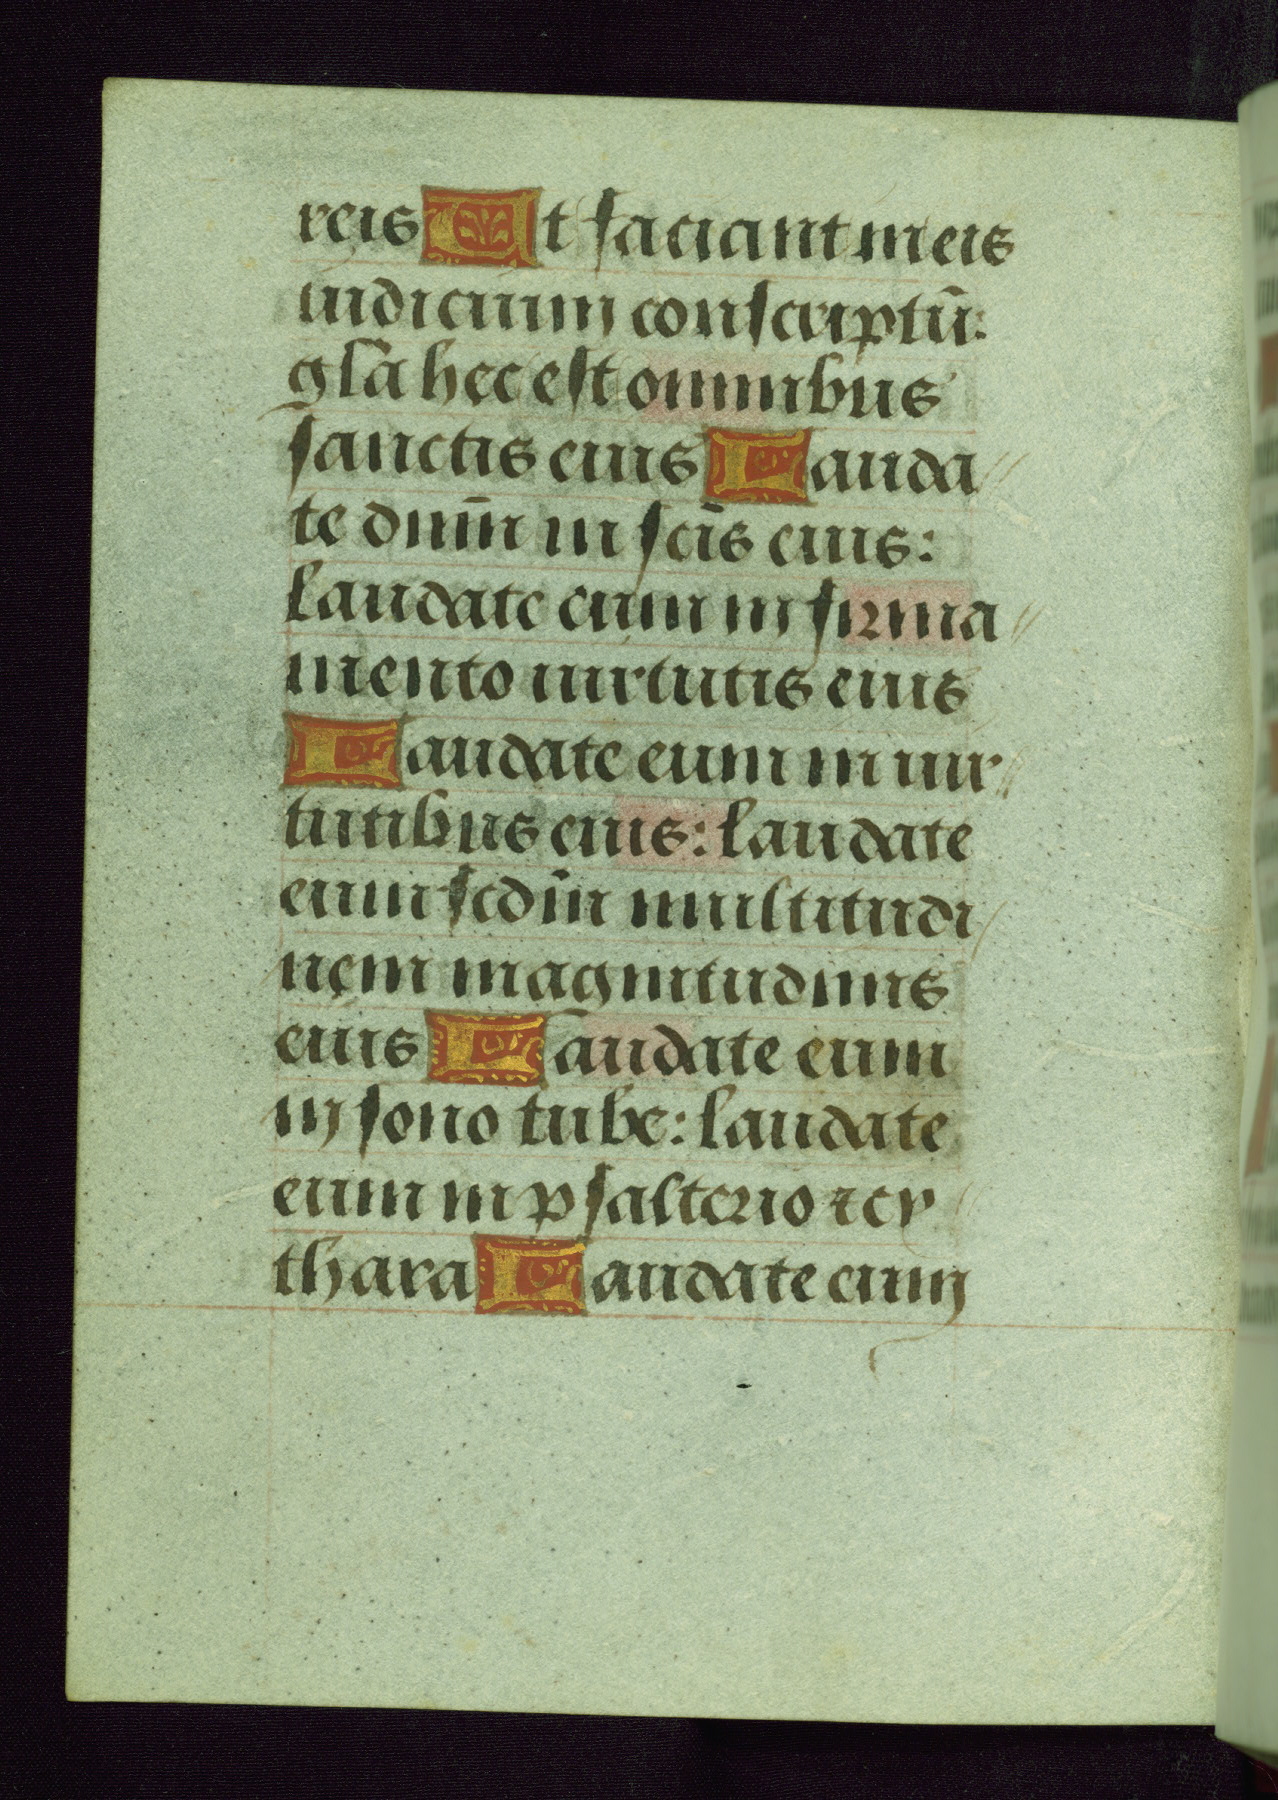 reis Ut faciant in eis
iudicium conscriptū:
glā hec est omnibus
sanctis eius Lauda
te dnm̄ in scīs eius:
laudate eum in firma
mento uirtutis eius
Laudate eum in uir
tutibus eius: laudate
eum scdm̄ multitudi
nem magnitudinis
eius Laudate eum
in sono tube: laudate
eum in psalterio ⁊ cy
thara Laudate eum